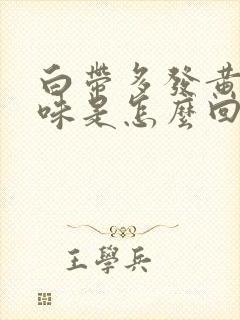 白帶多發黃
味是怎麼回
王學兵